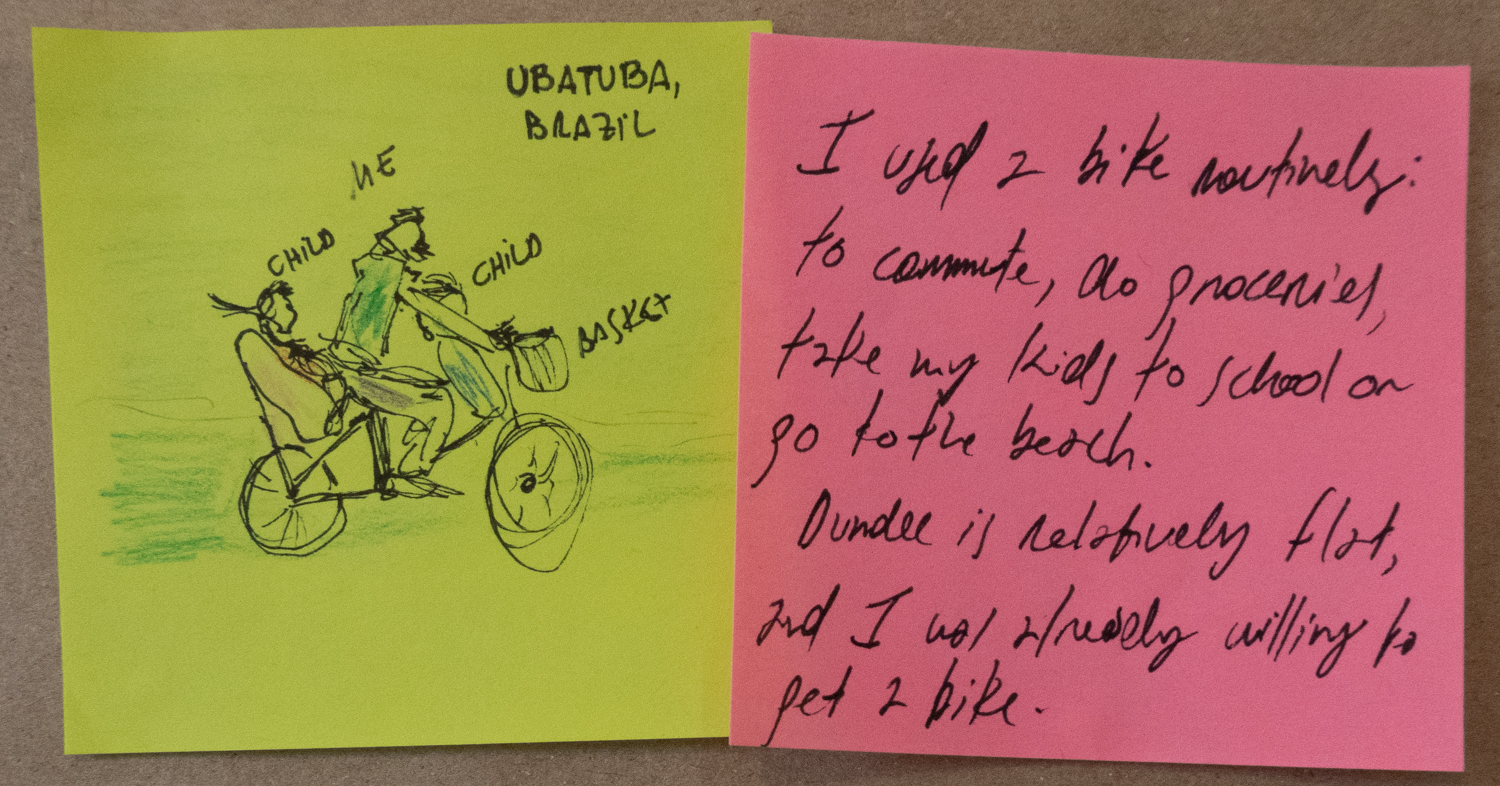 UBATUBA,
BRAZIL
ME
CHILD
CHILD
BASKET
I used a bike routinely:
to commute, do groceries,
take my kids to school or
go to the beach.
Dundee is relatively flat,
and I was already willing to
get a bike.